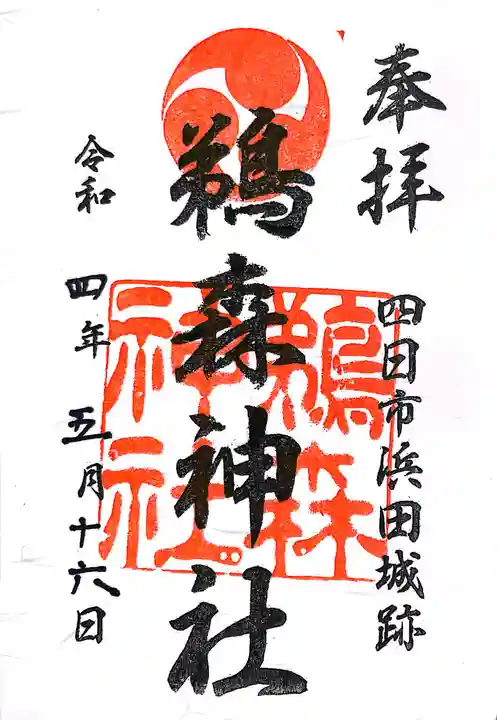 奉拝
四日市浜田城跡
鵜森神社
鵜森
神社
令和四年五月十六日